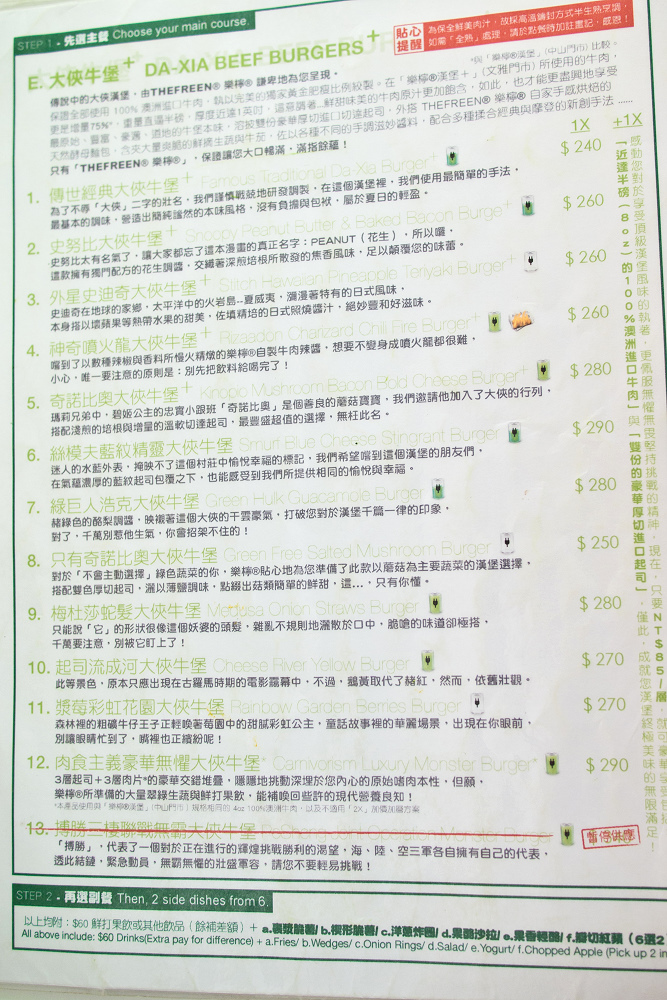 STEP 1 - 先選主餐 Choose your main course.
貼心提醒
為保全鮮美肉汁，故採高溫鎖封方式半生熟烹調，
如需「全熟」處理，請於點餐時加註畫記，感恩！
E. 大俠牛堡+ DA-XIA BEEF BURGERS+
*與「樂檸®漢堡」(中山門市) 比較。
傳說中的大俠漢堡，由THEFREEN® 樂檸® 謙卑地為您呈現。
只有「THEFREEN® 樂檸®」，保證讓您大口暢滿，滿指餘蘊！
1X +1X
1. 傳世經典大俠牛堡+ Famous Traditional Da-Xia Burger+ $ 240
為了不辱「大俠」二字的壯名，我們謹慎戰兢地研發調製，在這個漢堡裡，我們使用最簡單的手法，
最基本的調味，營造出簡純謐然的本味風格，沒有負擔與包袱，屬於夏日的輕盈。
2. 史努比大俠牛堡+ Snoopy Peanut Butter & Baked Bacon Burger+ $ 260
史努比太有名氣了，讓大家都忘了這本漫畫的真正名字：PEANUT（花生），所以囉，
這款擁有獨門配方的花生調醬，交織著深煎培根所散發的焦香風味，足以顛覆您的味蕾。
3. 外星史迪奇大俠牛堡+ Stitch Hawaiian Pineapple Teriyaki Burger+ $ 260
史迪奇在地球的家鄉，太平洋中的火岩島--夏威夷，瀰漫著特有的日式風味，
本身搭以壞蘋果等熱帶水果的甜美，佐填精培的日式照燒醬汁，絕妙豐和好滋味。
4. 神奇噴火龍大俠牛堡+ Rizaadon Charizard Chili Fire Burger+ $ 260
嚐到了以數種辣椒與香料所慢火精燉的樂檸®自製牛肉辣醬，想要不變身成噴火龍都很難，
小心，唯一要注意的原則是：別先把飲料給喝完了！
5. 奇諾比奧大俠牛堡+ Kinopio Mushroom Bacon Bold Cheese Burger+ $ 280
瑪莉兄弟中，碧姬公主的忠實小跟班「奇諾比奧」是個善良的蘑菇寶寶，我們邀請他加入了大俠的行列，
搭配淺煎的培根與增量的溫軟切達起司，最豐盛超值的選擇，無枉此名。
6. 絲模夫藍紋精靈大俠牛堡 Smurf Blue Cheese Stingrant Burger $ 290
迷人的水藍外表，掩映不了這個村莊中愉悅幸福的標記，我們希望嚐到這個漢堡的朋友們，
在氣蘊濃厚的藍紋起司包覆之下，也能感受到我們所提供相同的愉悅與幸福。
7. 綠巨人浩克大俠牛堡 Green Hulk Guacamole Burger $ 280
赭綠色的酪梨調醬，映襯著這個大俠的干雲豪氣，打破您對於漢堡千篇一律的印象，
對了，千萬別惹他生氣，你會招架不住的！
8. 只有奇諾比奧大俠牛堡 Green Free Salted Mushroom Burger $ 250
對於「不會主動選擇」綠色蔬菜的你，樂檸®貼心地為您準備了此款以蘑菇為主要蔬菜的漢堡選擇，
搭配雙色厚切起司，灑以薄鹽調味，點綴出菇類簡單的鮮甜，這...，只有你懂。
9. 梅杜莎蛇髮大俠牛堡 Medusa Onion Straws Burger $ 280
只能說「它」的形狀很像這個妖婆的頭髮，雜亂不規則地灑散於口中，脆嗆的味道卻極搭，
千萬要注意，別被它盯上了！
10. 起司流成河大俠牛堡 Cheese River Yellow Burger $ 270
此等景色，原本只應出現在古羅馬時期的電影露幕中，不過，鵝黃取代了赭紅，然而，依舊壯觀。
11. 漿莓彩虹花園大俠牛堡 Rainbow Garden Berries Burger $ 270
森林裡的粗礦牛仔王子正輕喚著莓園中的甜膩彩虹公主，童話故事裡的華麗場景，出現在你眼前，
別讓眼睛忙到了，嘴裡也正繽紛呢！
12. 肉食主義豪華無懼大俠牛堡* Carnivorism Luxury Monster Burger* $ 290
3層起司＋3層肉片*的豪華交錯堆疊，隱隱地挑動深埋於您內心的原始嗜肉本性，但願，
樂檸®所準備的大量翠綠生蔬與鮮打果飲，能補喚回些許的現代營養良知！
*本產品使用與「樂檸®漢堡」(中山門市) 規格相同的 4oz 100%澳洲牛肉，以及不適用「2X」加價加層方案
13. 博勝三棲聯戰無霸大俠牛堡 暫停供應
「博勝」，代表了一個對於正在進行的輝煌挑戰勝利的渴望，海、陸、空三軍各自擁有自己的代表，
透此結鏈，緊急動員，無霸無懼的壯盛軍容，請您不要輕易挑戰！
STEP 2 - 再選副餐 Then, 2 side dishes from 6.
以上均附：$60 鮮打果飲或其他飲品（餘補差額）＋ a.裹漿脆薯/ b.楔形脆薯/ c.洋蔥炸圈/ d.果醋沙拉/ e.果香輕酪/ f.瓣切紅蘋（6選2
All above include: $60 Drinks(Extra pay for difference) + a.Fries/ b.Wedges/ c.Onion Rings/ d.Salad/ e.Yogurt/ f.Chopped Apple (Pick up 2 in